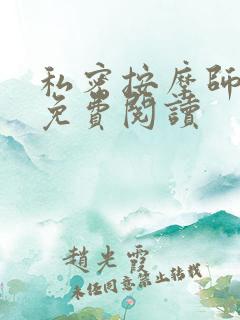 私密按摩師
免費閱讀
趙光霞
未經同意禁止轉載